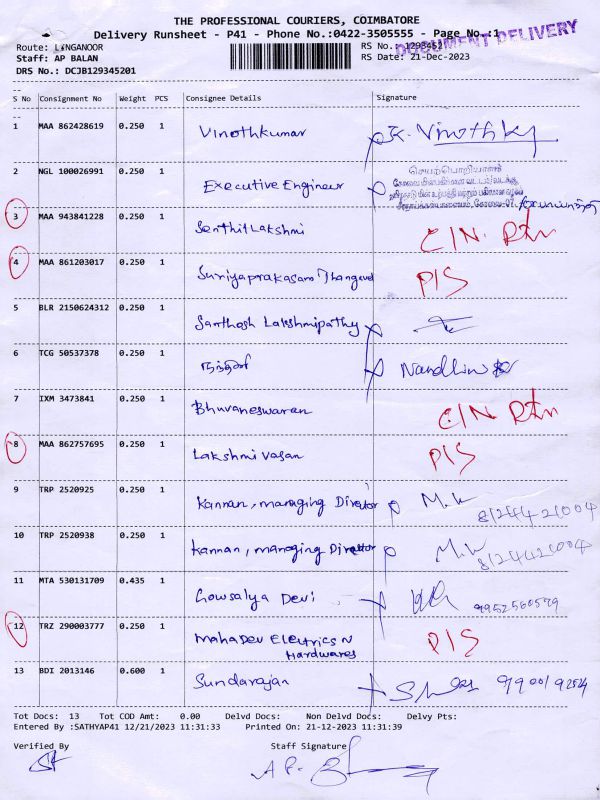 THE PROFESSIONAL COURIERS, COIMBATORE
Delivery Runsheet - P41 - Phone No.:0422-3505555 - Page No.:1
DOCUMENT DELIVERY
Route: LINGANOOR RS No.:
Staff: AP BALAN RS Date: 21-Dec-2023
DRS No.: DCJB129345201
S No Consignment No Weight PCS Consignee Details Signature
1 MAA 862428619 0.250 1 Vinothkumar K. Vinothky
2 NGL 100026991 0.250 1 Executive Engineer செயற்பொறியாளர்
3 MAA 943841228 0.250 1 SenthilLakshmi C/N. Rtn
4 MAA 861203017 0.250 1 Suriyaprakasam Thangavel P/S
5 BLR 2150624312 0.250 1 Santhosh Lakshmipathy
6 TCG 50537378 0.250 1 நந்தினி Nandhini
7 IXM 3473841 0.250 1 Bhuvaneswaran C/N Rtn
8 MAA 862757695 0.250 1 Lakshmi Vasan P/S
9 TRP 2520925 0.250 1 Kannan, managing Dirátor M.K
8124421004
10 TRP 2520938 0.250 1 Kannan, managing Director M.K
8124421004
11 MTA 530131709 0.435 1 Gowsalya Devi 9952560579
12 TRZ 290003777 0.250 1 Mahadev Electrics N
Hardwares P/S
13 BDI 2013146 0.600 1 Sundarajan
Tot Docs: 13 Tot COD Amt: 0.00 Delvd Docs: Non Delvd Docs: Delvy Pts:
Entered By :SATHYAP41 12/21/2023 11:31:33 Printed On: 21-12-2023 11:31:39
Verified By Staff Signature